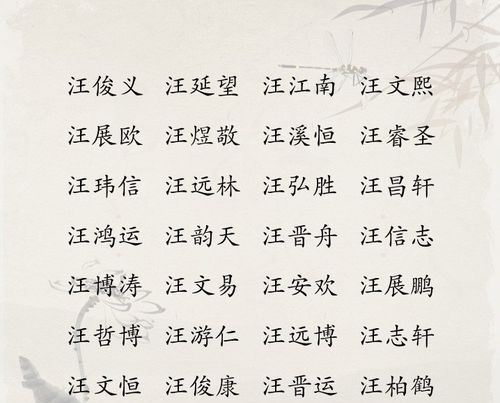 汪俊义 汪延望 汪江南 汪文熙
汪展欧 汪煜敬 汪溪恒 汪睿圣
汪玮信 汪远林 汪弘胜 汪昌轩
汪鸿运 汪韵天 汪晋舟 汪信志
汪博涛 汪文易 汪安欢 汪展鹏
汪哲博 汪游仁 汪远博 汪志轩
汪文恒 汪俊康 汪晋运 汪柏鹤